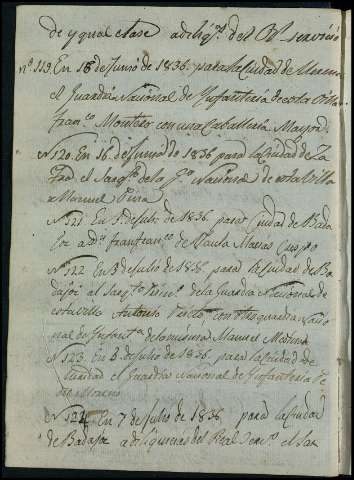 de ygual clase a diligs. del Rl. servicio
nº. 119. En 16 de Junio de 1836. para la Ciudad de
el Guardia Nacional de Ynfanteria de esta Villa
Franco. Montero con una Caballeria Mayor
Nº 120. En 16 de Junio de 1836 para la Ciudad de Za
fra el Sargto. de la Ga. Nacional de esta Villa
Manuel Piza
Nº 121 En 1º de Julio de 1836. para Ciudad de Bada
joz a Dn. Franco. de Paula Macias Crespo
Nº 122 En 3 de Julio de 1836. para la Ciudad de Ba
dajoz al Sargto. de la Guardia Nacional de
esta Villa Antonio con otro guardia Nacio
nal de Ynfanta. de la misma Manuel Medina
Nº 123 En 6 de Julio de 1836. para la Ciudad de
el Guardia Nacional de Ynfanteria Pe
dro Moreno
Nº 124 En 7 de Julio de 1836 para la Ciudad
de Badajoz a diligencias del Real Servo. el Sar